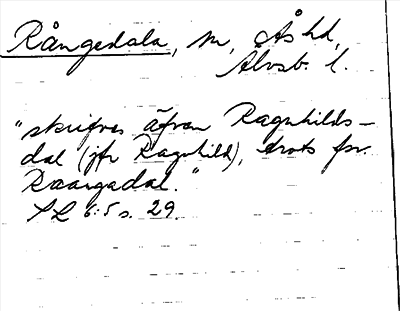 Rångedala, sn, Ås hd,
Älvsb. l.
"skrifves äfven Ragnhilds-
dal (jfr Ragnhild), trots fsv.
Raangadal."
SL 6:5 s. 29.